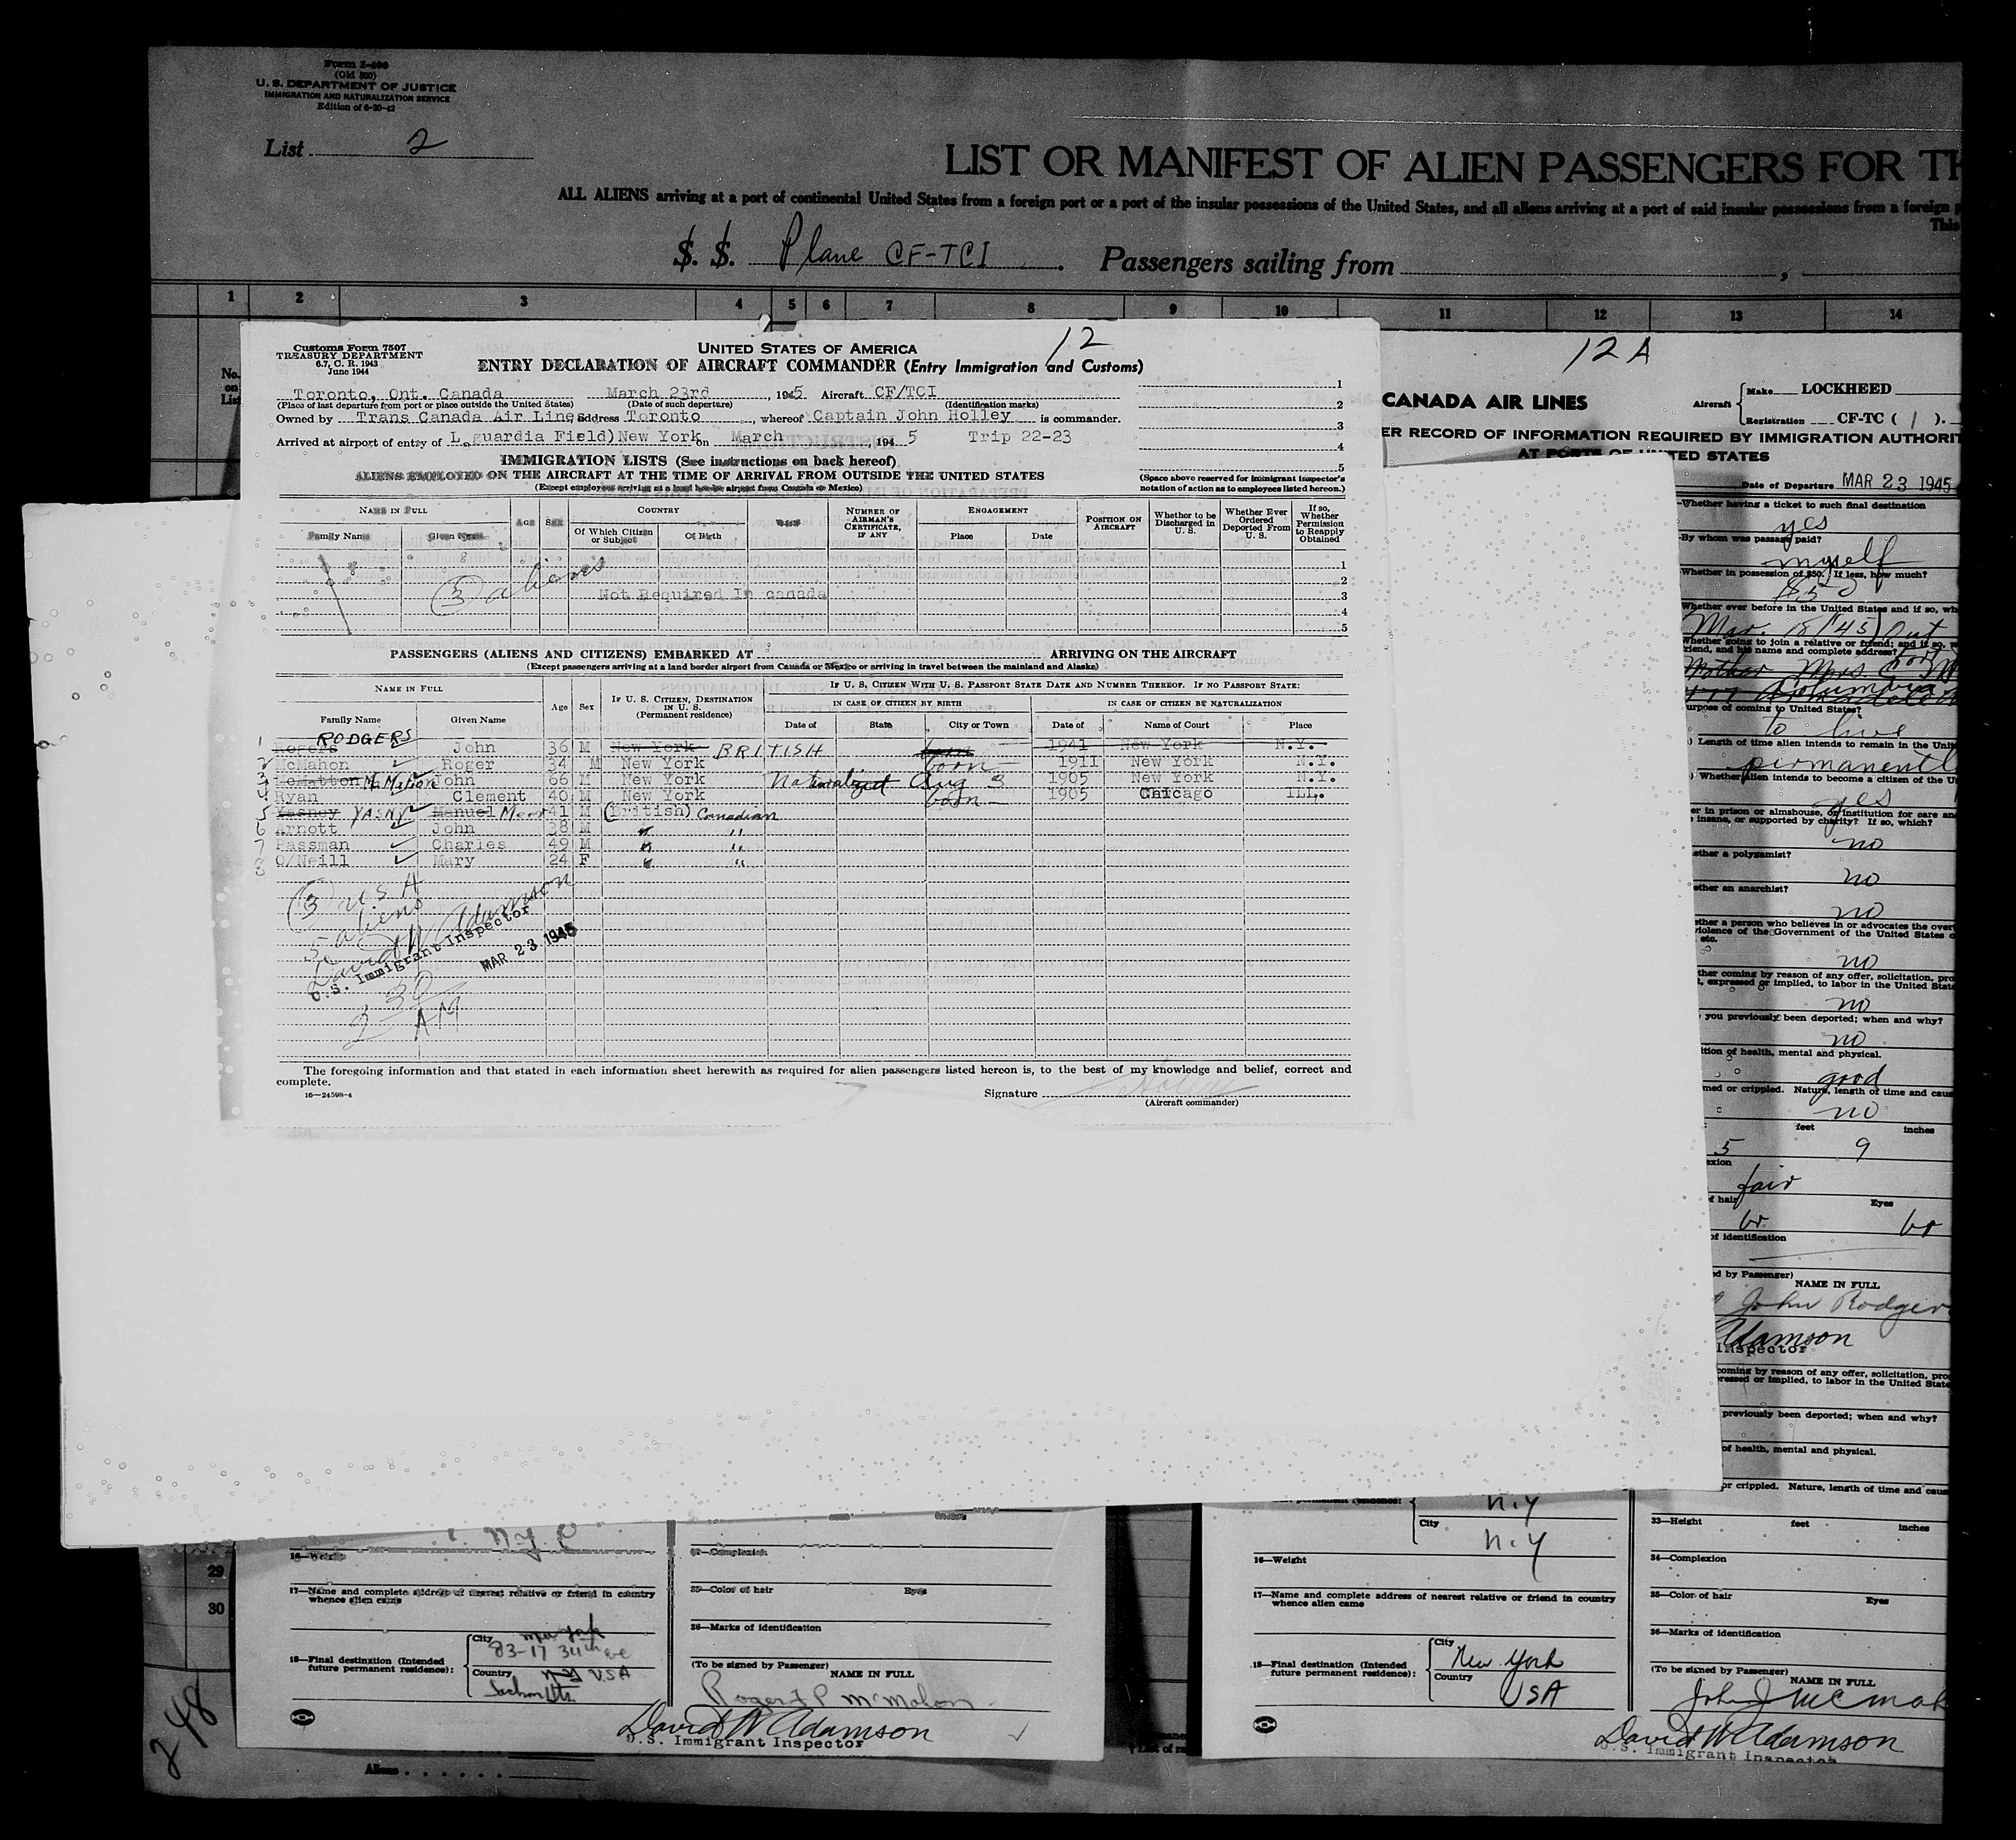 Form I-466
(Old 500)
U. S. DEPARTMENT OF JUSTICE
IMMIGRATION AND NATURALIZATION SERVICE
Edition of 6-20-42
List 2
LIST OR MANIFEST OF ALIEN PASSENGERS FOR TH
ALL ALIENS arriving at a port of continental United States from a foreign port or a port of the insular possessions of the United States, and all aliens arriving at a port of said insular possessions from a foreign
This
S. S. Plane CF-TCI. Passengers sailing from ,
1 2 3 4 5 6 7 8 9 10 11 12 13 14
No. on List
Customs Form 7507
TREASURY DEPARTMENT
6.7, C. R. 1943
June 1944
UNITED STATES OF AMERICA
12
ENTRY DECLARATION OF AIRCRAFT COMMANDER (Entry Immigration and Customs)
Toronto, Ont. Canada March 23rd, 1945 Aircraft CF/TCI
(Place of last departure from port or place outside the United States) (Date of such departure) (Identification marks)
Owned by Trans Canada Air Line, Address Toronto, whereof Captain John Holley is commander.
Arrived at airport of entry of L guardia Field) New York on March, 194 5 Trip 22-23
1
2
3
4
5
IMMIGRATION LISTS (See instructions on back hereof)
ALIENS EMPLOYED ON THE AIRCRAFT AT THE TIME OF ARRIVAL FROM OUTSIDE THE UNITED STATES
(Except employees arriving at a land border airport from Canada or Mexico)
(Space above reserved for Immigrant Inspector's notation of action as to employees listed hereon.)
NAME IN FULL Age Sex COUNTRY NUMBER OF AIRMAN'S CERTIFICATE, IF ANY ENGAGEMENT POSITION ON AIRCRAFT Whether to be Discharged in U. S. Whether Ever Ordered Deported From U. S. If so, Whether Permission to Reapply Obtained
Family Name Given Name Of Which Citizen or Subject Of Birth Place Date
1
2
3
4
5
3 aliens
Not Required In canada
PASSENGERS (ALIENS AND CITIZENS) EMBARKED AT ARRIVING ON THE AIRCRAFT
(Except passengers arriving at a land border airport from Canada or Mexico or arriving in travel between the mainland and Alaska)
NAME IN FULL Age Sex IF U. S. CITIZEN, DESTINATION IN U. S. (Permanent residence) IF U. S. CITIZEN WITH U. S. PASSPORT STATE DATE AND NUMBER THEREOF. IF NO PASSPORT STATE:
IN CASE OF CITIZEN BY BIRTH IN CASE OF CITIZEN BY NATURALIZATION
Family Name Given Name Date of State City or Town Date of Name of Court Place
RODGERS
Rogers John 36 M New York BRITISH born 1941 New York N.Y.
McMahon Roger 34 M New York born 1911 New York N.Y.
McMahon John 66 M New York Naturalized Aug 3 1905 New York N.Y.
Ryan Clement 40 M New York born 1905 Chicago ILL.
Yashey YASNY Manuel 41 M (British) Canadian
Arnott John 38 M " "
Passman Charles 49 M " "
O/Neill Mary 24 F " "
(3) U.S A
5 aliens
David W Adamson
U.S. Immigrant Inspector
MAR 23 1945
2 30 AM
The foregoing information and that stated in each information sheet herewith as required for alien passengers listed hereon is, to the best of my knowledge and belief, correct and complete.
16—24598-4
Signature
(Aircraft commander)
12 A
CANADA AIR LINES
Aircraft Make LOCKHEED
Registration CF-TC ( 1 ).
ER RECORD OF INFORMATION REQUIRED BY IMMIGRATION AUTHORIT
AT PORTS OF UNITED STATES
Date of Departure MAR 23 1945
Whether having a ticket to such final destination
yes
By whom was passage paid?
myself
Whether in possession of $50. If less, how much?
$50
Whether ever before in the United States and if so, wh
Mar. 18/45) Out
Whether going to join a relative or friend; and if so, w
friend, and his name and complete address?
Mother Mrs.
Columbia
urpose of coming to United States?
to live
) Length of time alien intends to remain in the Unit
permanentl
) Whether alien intends to become a citizen of the U
yes
er in prison or almshouse, or institution for care an
insane, or supported by charity? If so, which?
no
ether a polygamist?
no
ether an anarchist?
no
ether a person who believes in or advocates the over
violence of the Government of the United States o
etc.
no
ther coming by reason of any offer, solicitation, pro
t, expressed or implied, to labor in the United State
no
you previously been deported; when and why?
no
ition of health, mental and physical.
good
med or crippled. Nature, length of time and caus
no
feet inches
5 9
exion
fair
f hair Eyes
br br
of identification
ed by Passenger)
NAME IN FULL
John Rodger
Adamson
Inspector
coming by reason of any offer, solicitation, pro
ressed or implied, to labor in the United State
previously been deported; when and why?
of health, mental and physical.
or crippled. Nature, length of time and caus
29
30
248
16—Weight
17—Name and complete address of nearest relative or friend in country whence alien came
18—Final destination (Intended future permanent residence):
City New York
83-17 34th ave
Country NY USA
Jackson Hts
34—Complexion
35—Color of hair Eyes
36—Marks of identification
(To be signed by Passenger)
NAME IN FULL
Roger P McMahon
David W Adamson
U.S. Immigrant Inspector
Aliens
permanent residence:
N.Y
City
N.Y
16—Weight
17—Name and complete address of nearest relative or friend in country whence alien came
18—Final destination (Intended future permanent residence):
City New York
Country USA
33—Height feet inches
34—Complexion
35—Color of hair Eyes
36—Marks of identification
(To be signed by Passenger)
NAME IN FULL
John J McMah
David W Adamson
U.S. Immigrant Inspector